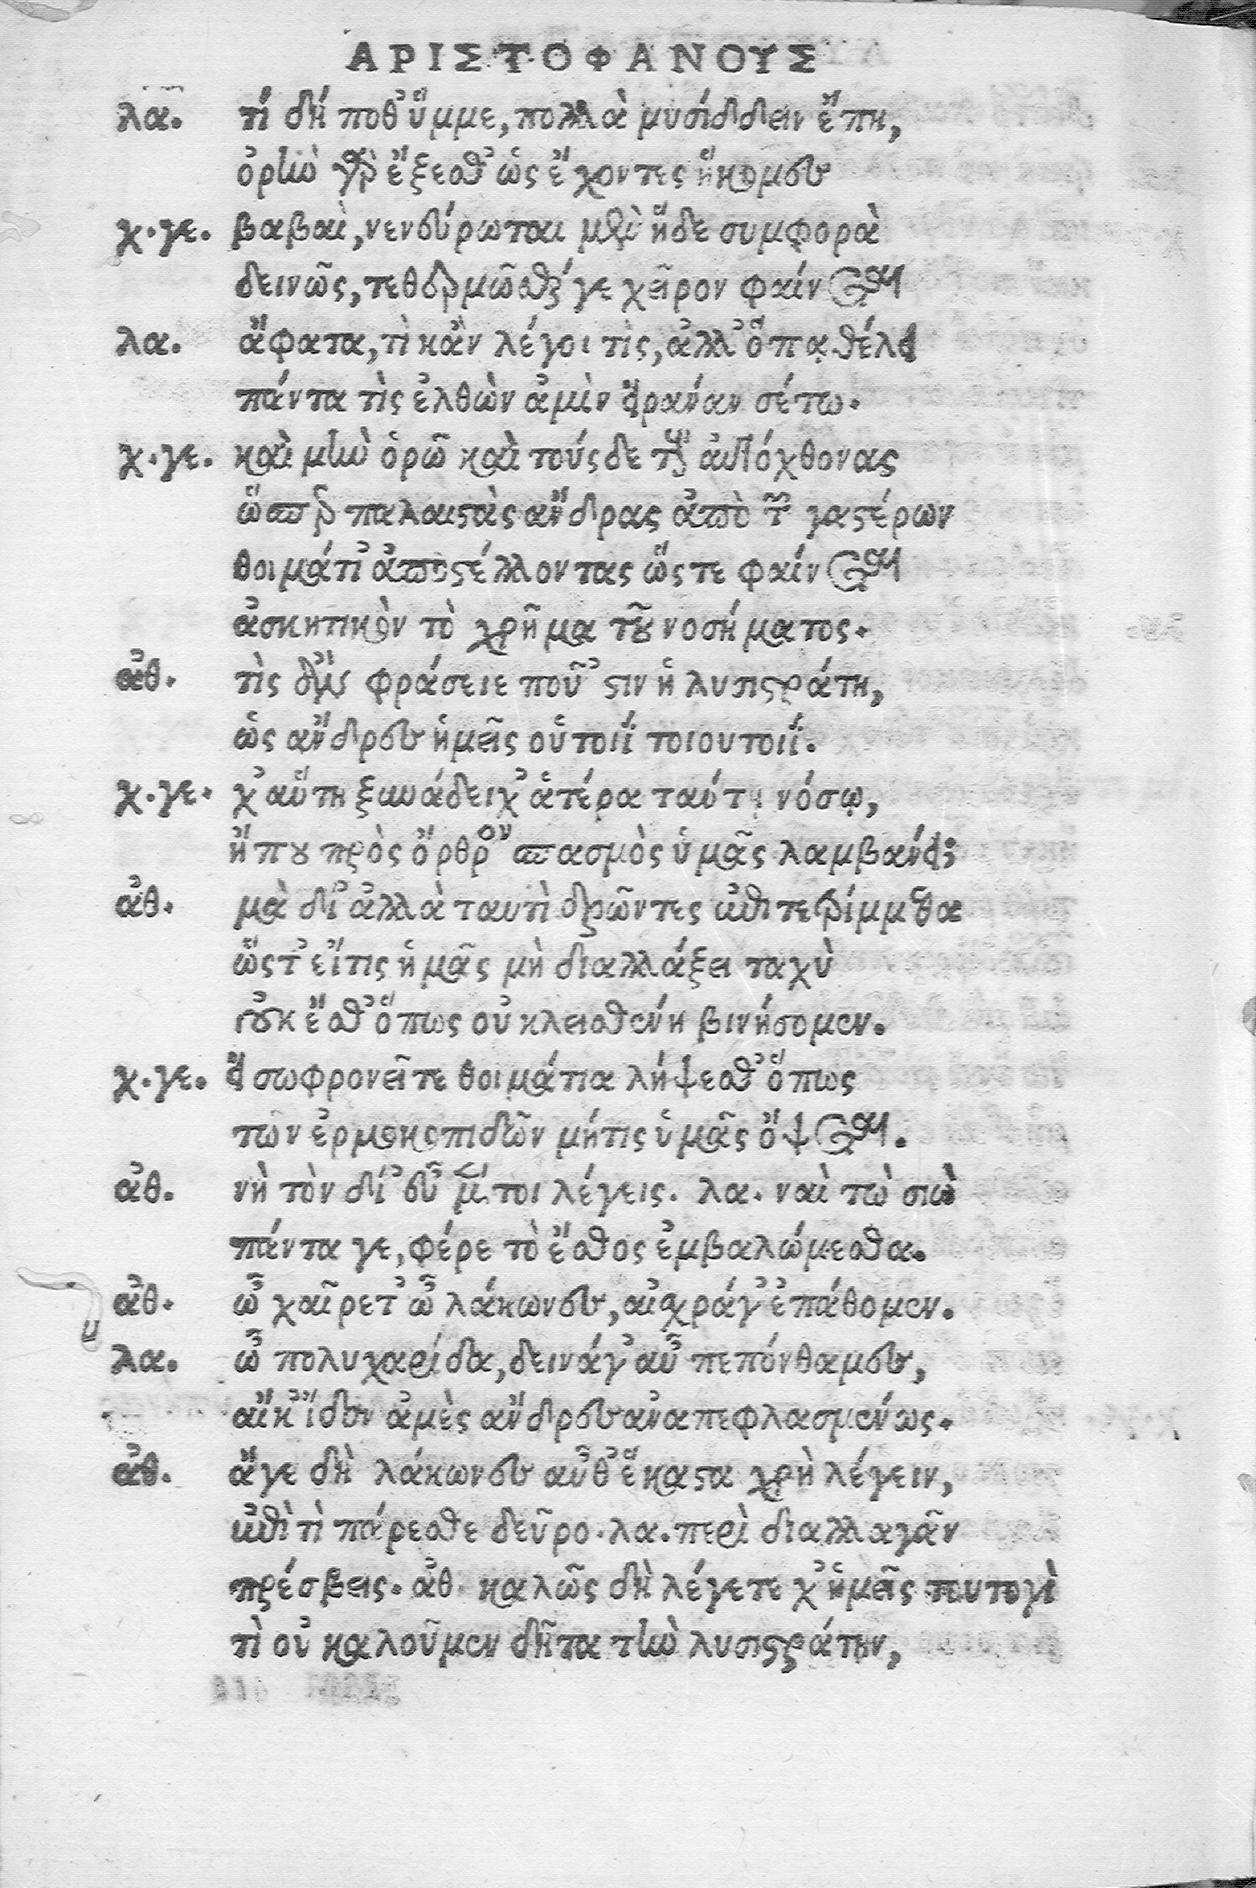 ΑΡΙΣΤΟΦΑΝΟΥΣ
λα. τί δή ποθ' ὔμμε, πολλὰ μυσίδδειν ἔπη,
ὁρῆν γὰρ ἔξεσθ' ὡς ἔχοντες ἥκομεν
χ.γε. βαβαὶ, νενεύρωται μὲν ἥδε συμφορὰ
δεινῶς, τεθερμῶσθαί γε χεῖρον φαίνεται
λα. ἄφατα, τὶ κἂν λέγοι τὶς, ἀλλ' ὅπᾳ θέλει
πάντα τὶς ἐλθὼν ἁμὶν εἰράναν σέτω.
χ.γε. καὶ μὴν ὁρῶ καὶ τούσδε τοὺς αὐτόχθονας
ὥσπερ παλαιστὰς ἄνδρας ἀπὸ τῶν γαστέρων
θοιμάτι' ἀποστέλλοντας ὥστε φαίνεται
ἀσκητικὸν τὸ χρῆμα τοῦ νοσήματος.
ἀθ. τὶς ἂν φράσειε ποῦ 'στιν ἡ λυσιστράτη,
ὡς ἄνδρες ἡμεῖς οὑτοιΐ τοιουτοιΐ.
χ.γε. χ' αὕτη ξυνάδει χ' ἁτέρα ταύτῃ νόσῳ,
ἤπου πρὸς ὄρθρον σπασμὸς ὑμᾶς λαμβάνει;
ἀθ. μὰ δί' ἀλλὰ ταυτὶ δρῶντες ἐπιτετρίμμεθα
ὥστ' εἴτις ἡμᾶς μὴ διαλλάξει ταχὺ
οὐκ ἔσθ' ὅπως οὐ κλεισθένη βινήσομεν.
χ.γε. εἰ σωφρονεῖτε θοιμάτια λήψεσθ' ὅπως
των ἑρμοκοπιδῶν μήτις ὑμᾶς ὄψεται.
ἀθ. νὴ τὸν δί' εὖ μέντοι λέγεις. λα. ναὶ τὼ σιὼ
πάντα γε, φέρε τὸ ἔσθος ἐμβαλώμεσθα.
ἀθ. ὦ χαῖρετ' ὦ λάκωνες, αἰσχράγ' ἐπάθομεν.
λα. ὦ πολυχαρίδα, δεινάγ' αὖ πεπόνθαμες,
αἴκ' ἴδον ἁμὲς ἄνδρες ἀναπεφλασμένως.
ἀθ. ἄγε δὴ λάκωνες αὖθ' ἕκαστα χρὴ λέγειν,
ἐπὶ τὶ πάρεσθε δεῦρο. λα. περὶ διαλλαγᾶν
πρέσβεις. ἀθ. καλῶς δὴ λέγετε χ' ἡμεῖς τουτογὶ
τὶ οὐ καλοῦμεν δῆτα τὴν λυσιστράτην,